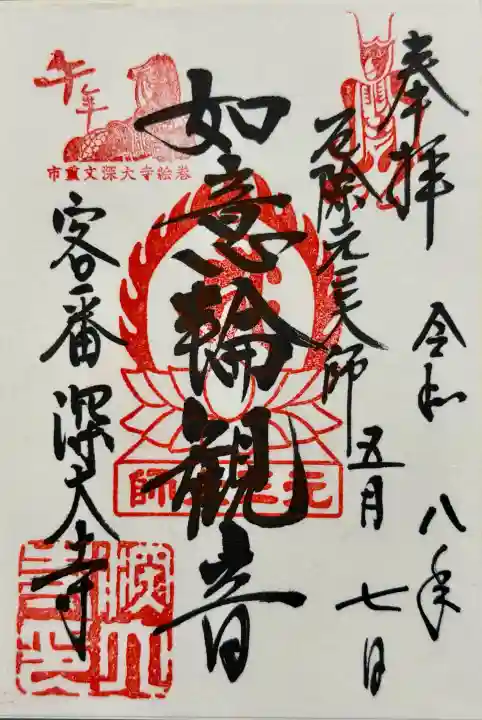 奉拝
令和八年
五月七日
厄除元三大師
如意輪観音
午年
市重文深大寺絵巻
客番深大寺